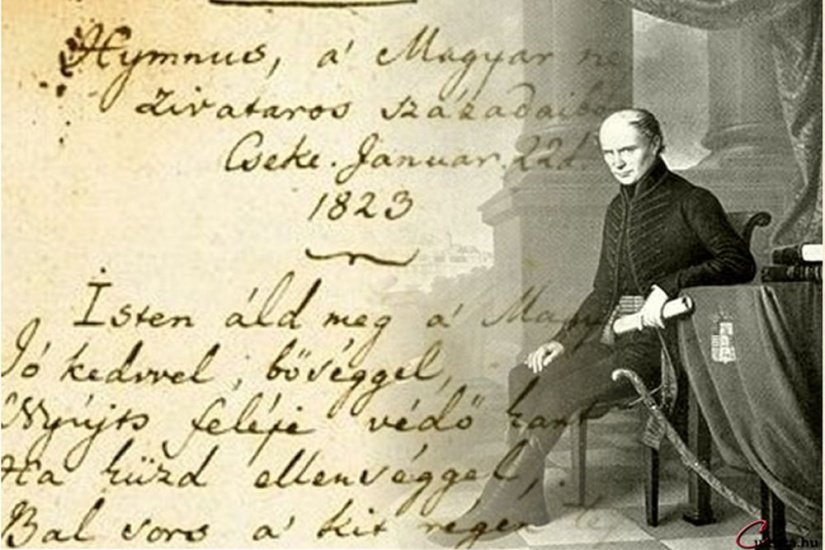 Hymnus, a' Magyar ne
zivataros századaibó
Cseke. Januar. 22d.
1823
Isten áld meg a' Magy
Jó kedvvel, bőséggel,
Nyújts feléje védő kart
Ha küzd ellenséggel,
Bal sors a' kit régen tép
Cultura.hu